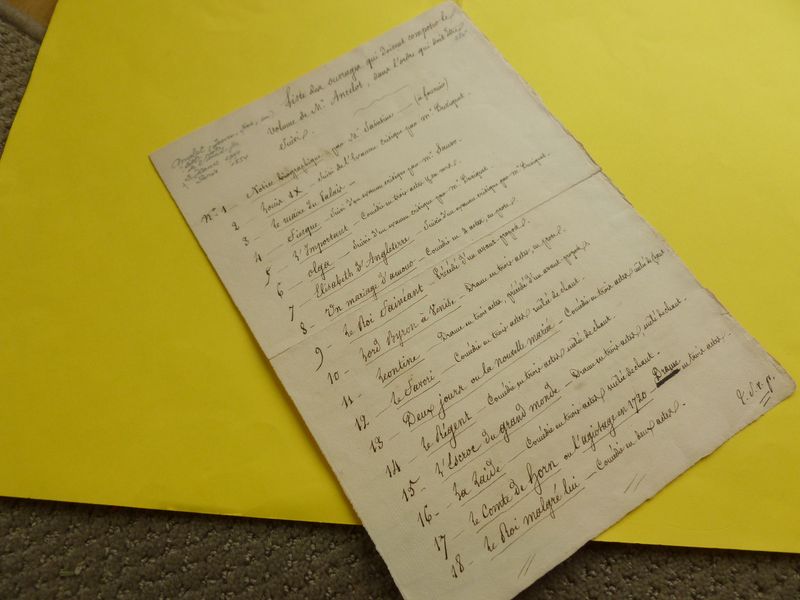 Liste des ouvrages qui doivent composer le
volume de Mr Ancelot, dans l'ordre qui doit être
suivi.
No 1 — Notice biographique par Mr Saintine — (à fournir)
2 Louis IX — suivi de l'Examen critique par Mr
3 — Le maire du Palais —
4 Fiesque — suivi d'un examen critique par Mr
5 L'Important — Comédie en trois actes & en vers.
6 — Olga — suivi d'un examen critique par Mr
7 — Elisabeth d'Angleterre — suivi d'un examen critique par Mr
8 — Un mariage d'amour — Comédie en 3 actes, en prose
9 — Le Roi Fainéant — Précédé d'un avant-propos
10 — Lord Byron à Venise — Drame en trois actes, en prose
11 — Léontine — Drame en trois actes, précédé d'un avant-propos
12 — Le Favori — Comédie en trois actes mêlée de chant.
13 — Deux jours ou la nouvelle mariée — Comédie en trois actes mêlée de chant
14 — Le Régent — Comédie en trois actes mêlée de chant.
15 — L'Escroc du grand monde — Drame en trois actes, mêlé de chant.
16 — La Laide — Comédie en trois actes mêlée de chant.
17 — Le Comte de Horn ou l'agiotage en 1720 — Drame en trois actes
18 — Le Roi malgré lui — Comédie en deux actes.
T. S. v. p.